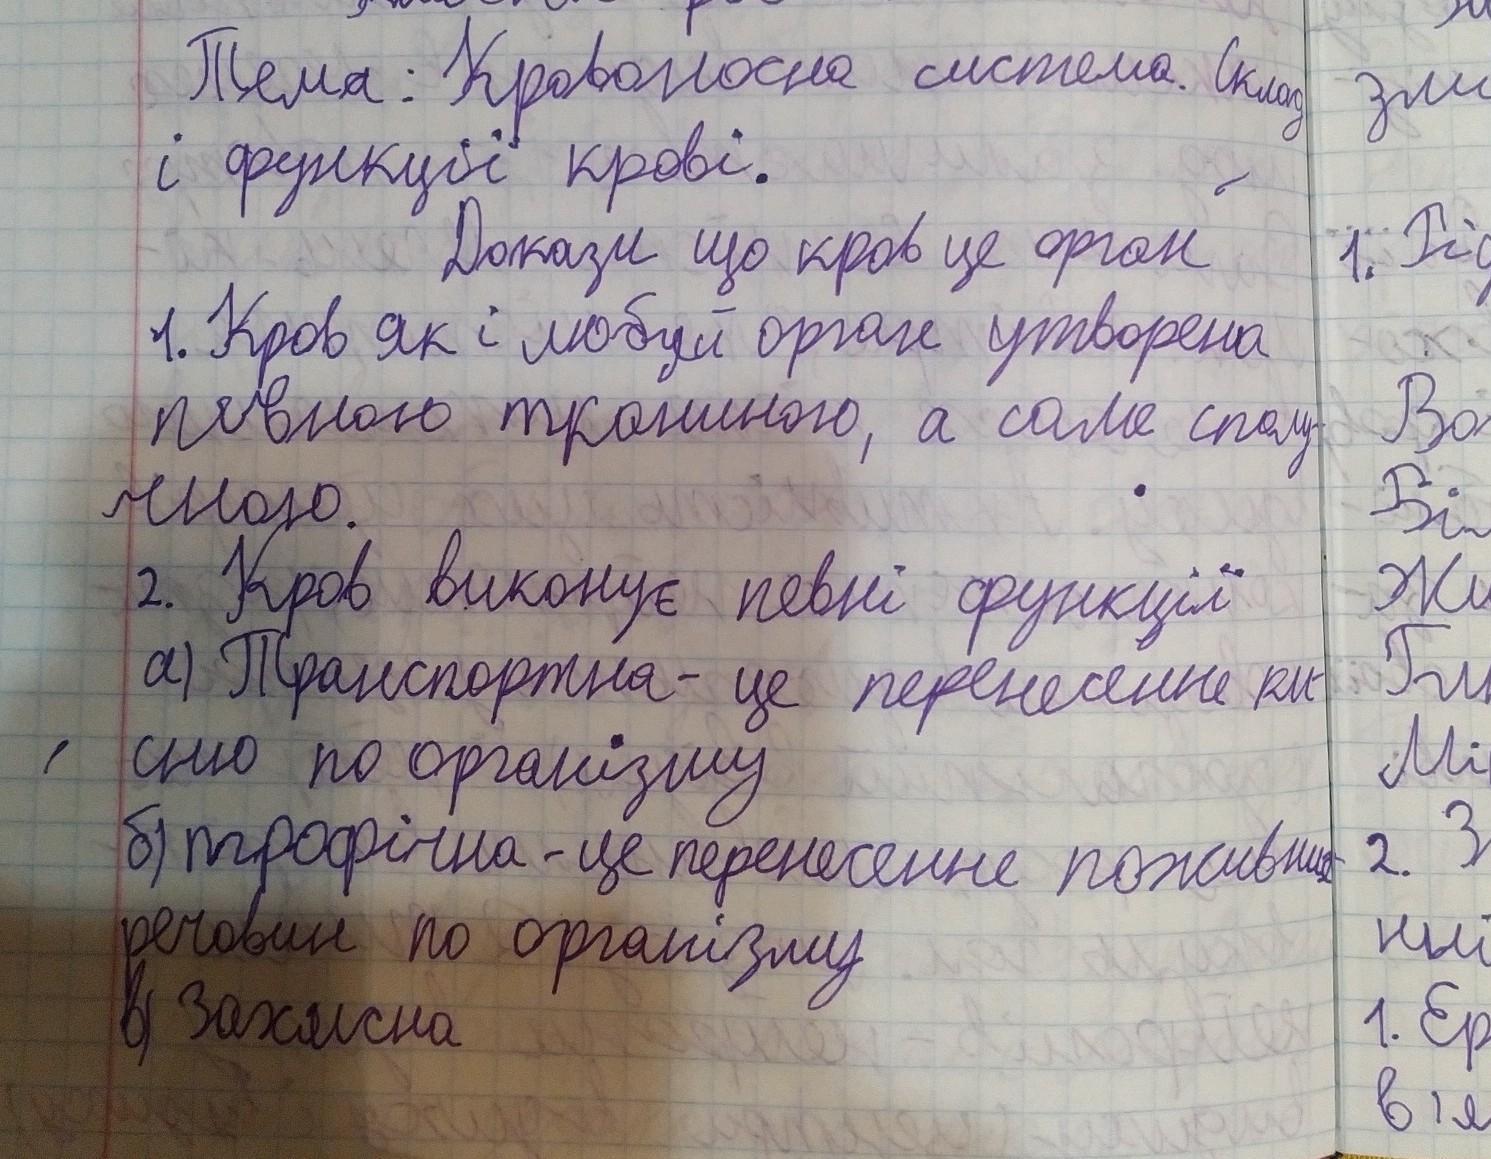 Тема: Кровоносна система. Склад
і функції крові.
Докази що кров це орган
1. Кров як і любий орган утворена
певною тканиною, а саме сполу-
чною.
2. Кров виконує певні функції
а) Транспортна - це перенесення ки-
сню по організму
б) трофічна - це перенесення поживних
речовин по організму
в) Захисна
зми
1. Гід
Біл
Жи
Мі
2. З
1. Ер
в'я